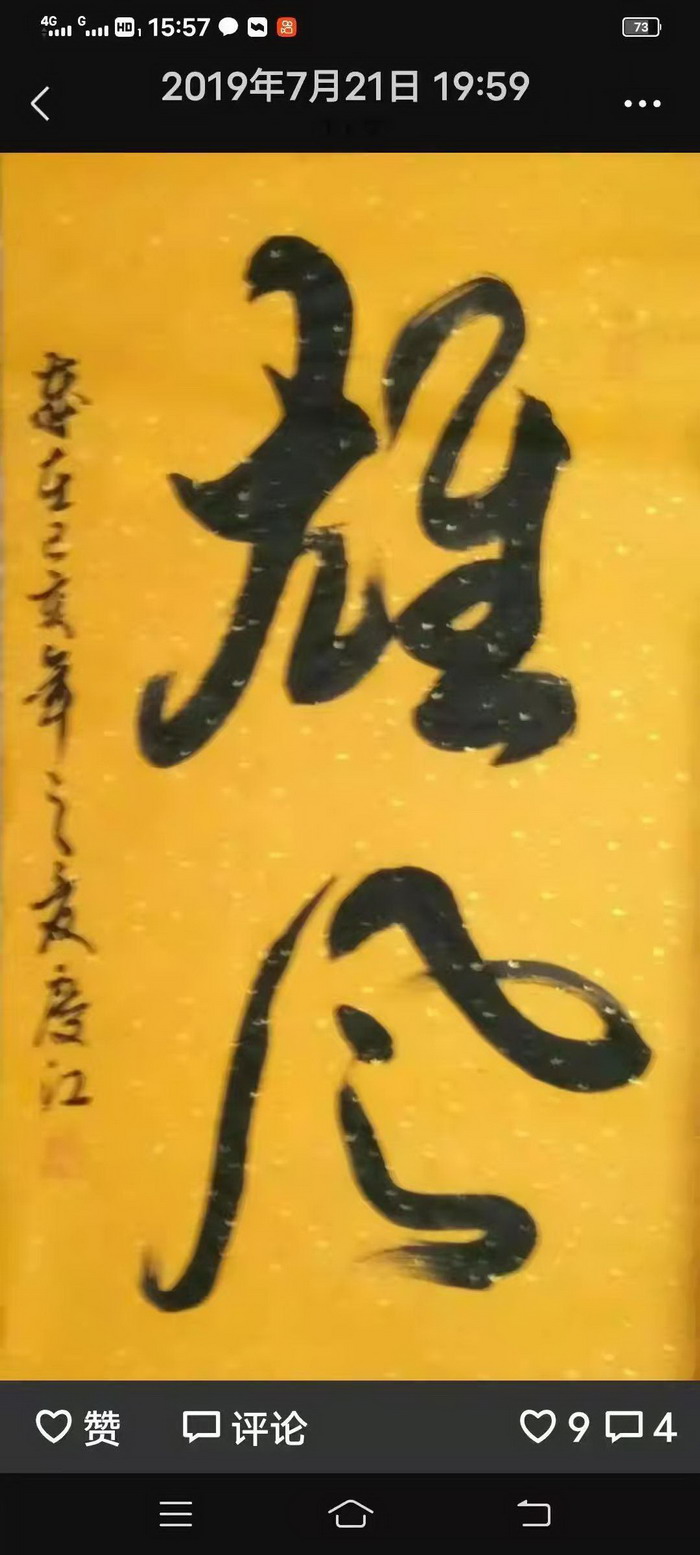 4G G HD 1 15:57 73
2019年7月21日 19:59
雄风
岁在己亥年之夏庆江
赞 评论 9 4